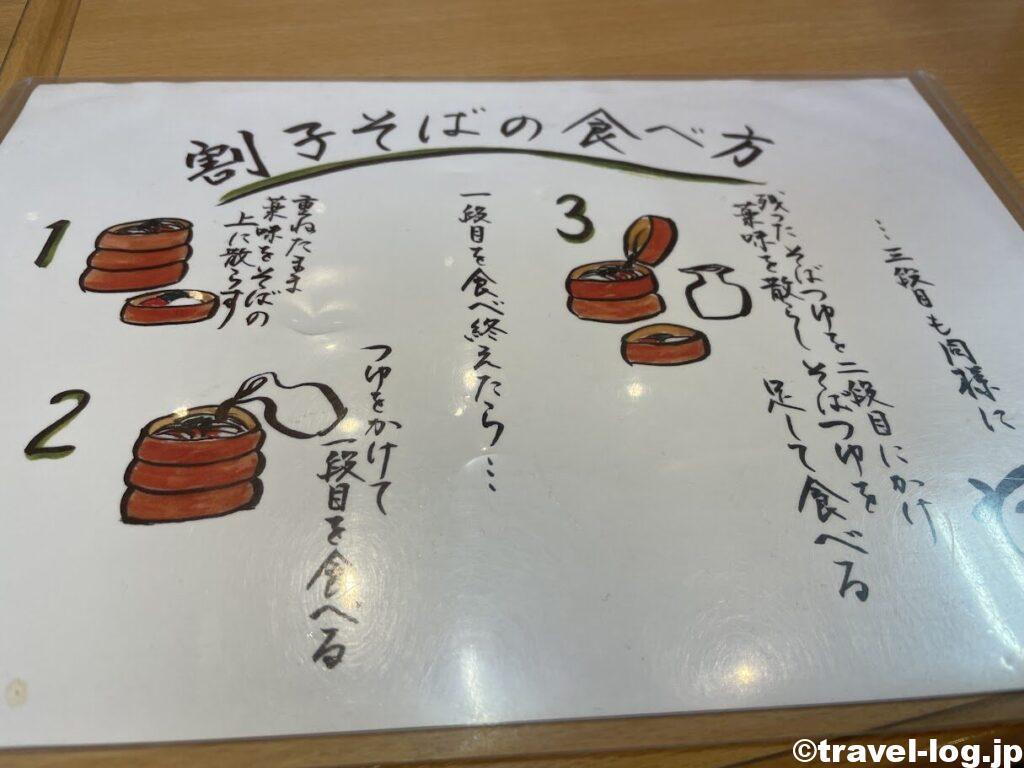 割子そばの食べ方
1
重ねたまま
薬味をそばの
上に散らす
2
つゆをかけて
一段目を食べる
一段目を食べ終えたら…
3
残ったそばつゆを二段目にかけ
薬味を散らしそばつゆを
足して食べる
…三段目も同様に
©travel-log.jp